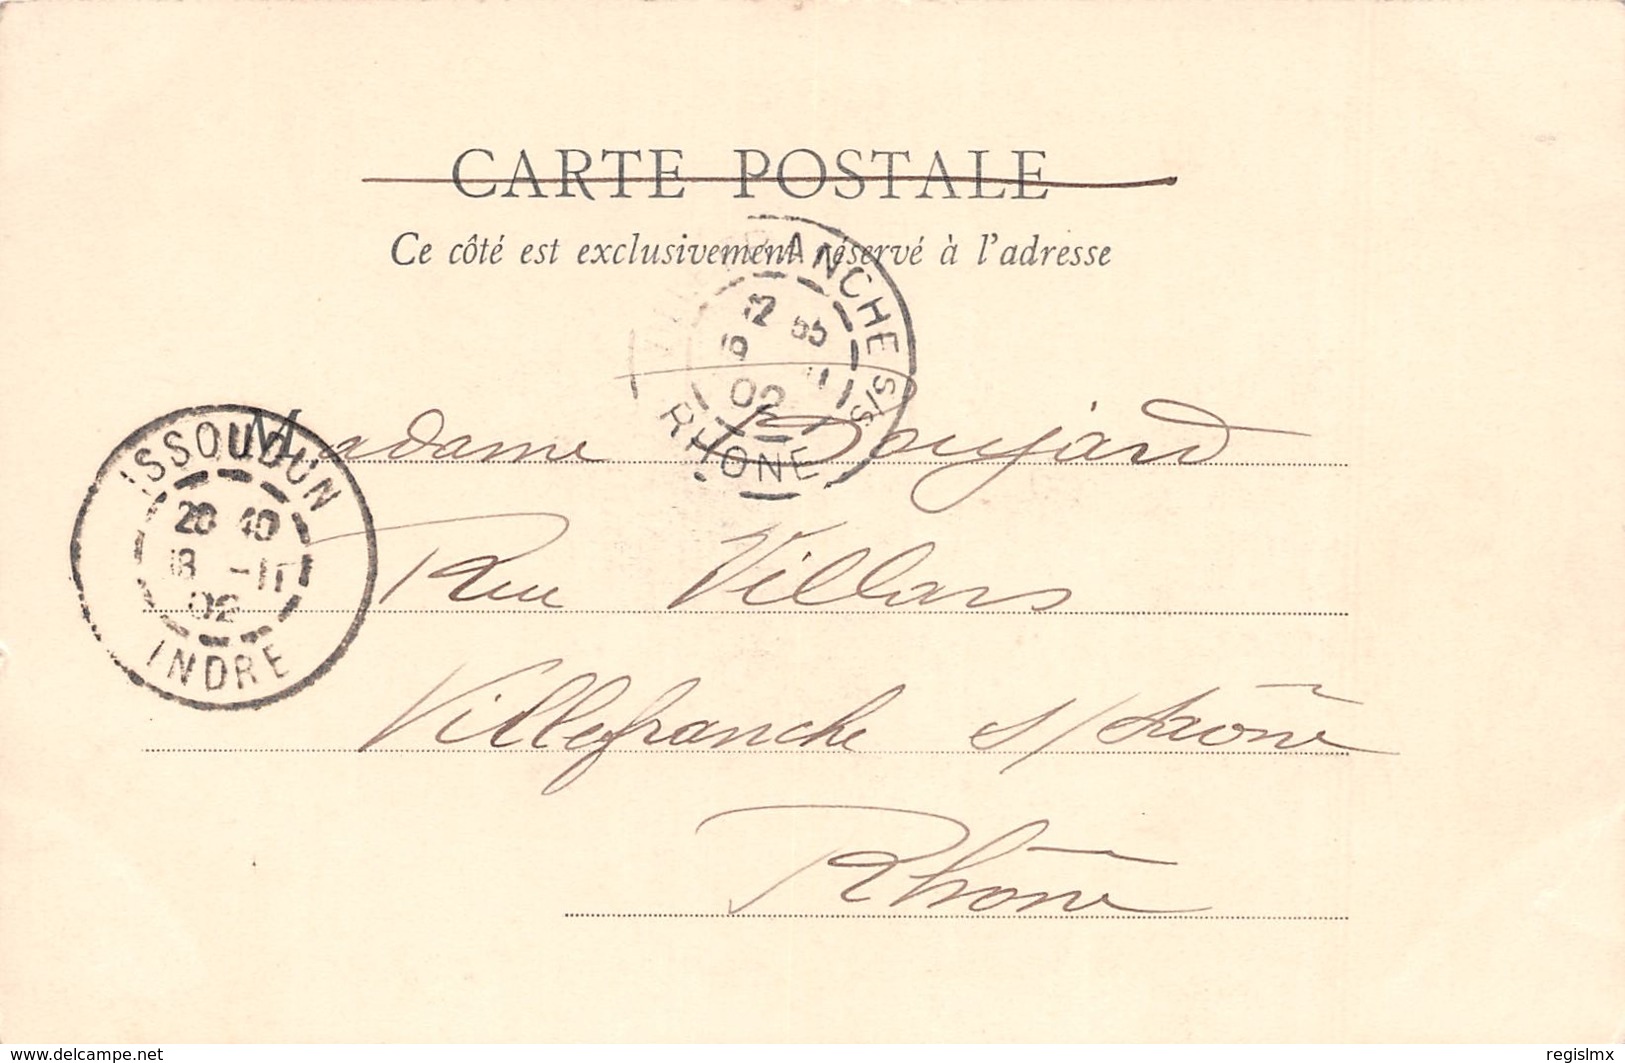 CARTE POSTALE
Ce côté est exclusivement réservé à l'adresse
VILLEFRANCHE S/S
12 55
11
02
RHONE
ISSOUDUN
20 40
18 -11
02
INDRE
Madame
Rue Villars
Villefranche s/Saône
Rhône
delcampe.net
regislmx